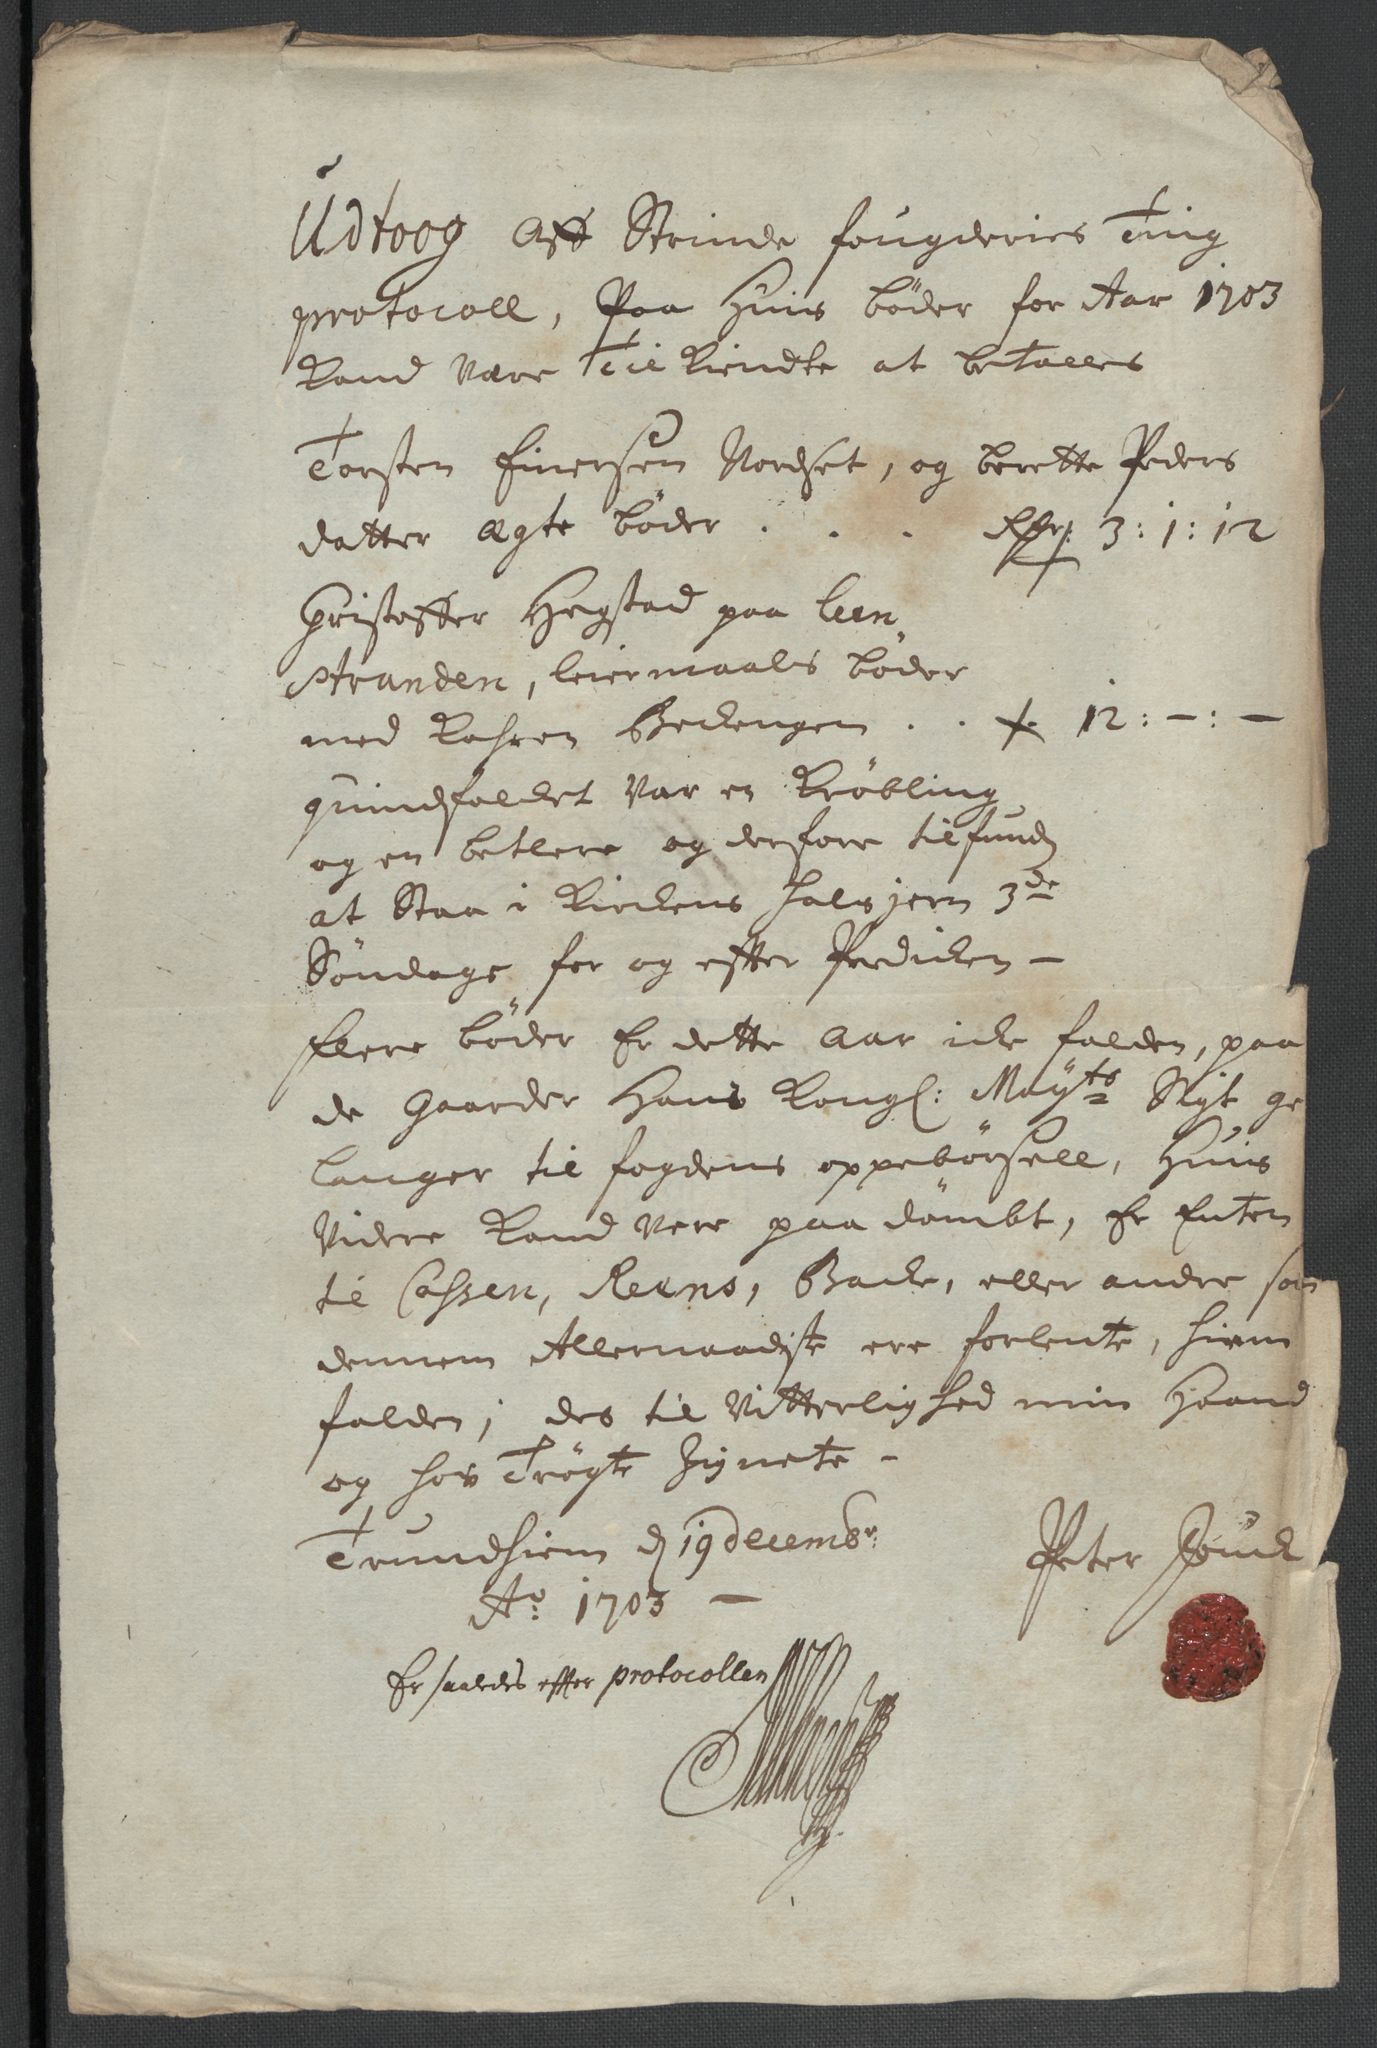 Udtoog Aff Strinde fougderies Ting
protocoll, Paa Huis bøder for Aar 1703
Kand være Til Kiendte at betalles
Torsten Einersen Nordset, og berette Peders
datter Ægte bøder . . . Rdr: 3: 1: 12
Christoffer Hegstad paa Leen
stranden, leiermaals bøder
med Kahren . . 12: – : –
quindfolcket var en Krøbling
og en betlere og derfore tilfunden
at Staa i Kirckens halsjern 3de
Søndage for og effter Predicken –
flere bøder Er dette Aar icke falden, paa
de gaarder Hans Kongl: Mayts Sigt ge
langer til fogdens oppebørsell, Huis
Videre Kand vere paa dømbt, Er Enten
til Cassen, Reens, Backe, eller andre som
dennem Allernaadigste ere forlente, hiem
falden; des til Vitterlighed min Haand
og hos Trøgte Zignete –
Trundhiem d 19 Decembr:
Ao: 1703 –
Peter
Er saaledes effter protocollen